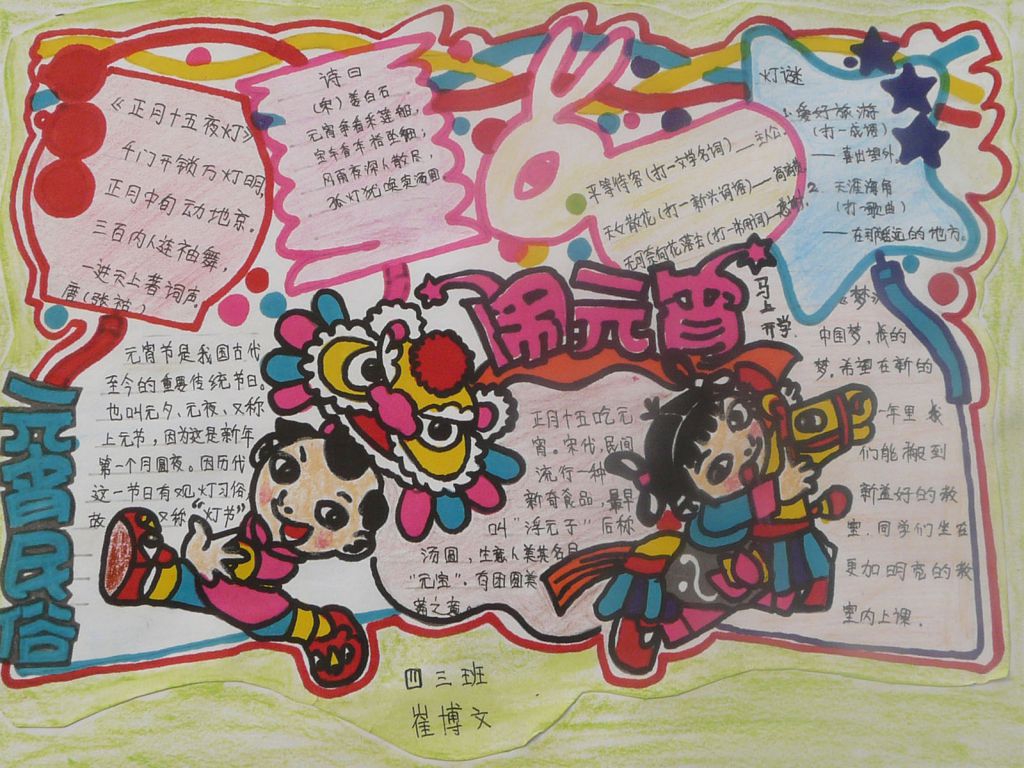 《正月十五夜灯》
千门开锁万灯明,
正月中旬动地京.
三百内人连袖舞,
一进天上著词声.
唐(张祜)
诗曰
(宋)姜白石
元宵争看采莲船,
宝车香车拾坠钿;
风雨夜深人散尽,
孤灯犹唤卖汤圆
平等待客(打一文学名词)——主人公.
天女散花(打一新兴词语)——
无可奈何花落去(打一书用词)——
灯谜
1. 爱好旅游
(打一成语)
——喜出望外.
2. 天涯海角
(打一歌曲)
——在那遥远的地方.
闹元宵
元宵民俗
元宵节是我国古代
至今的重要传统节日。
也叫元夕、元夜、又称
上元节,因为这是新年
第一个月圆夜。因历代
这一节日有观灯习俗,
故 又称“灯节”
正月十五吃元
宵。宋代,民间
流行一种
新奇食品,最早
叫“浮元子”后称
汤圆,生意人美其名曰
“元宝”。有团圆美
满之意。
马上开学
《梦
中国梦,我的
梦.希望在新的
一年里 我
们能搬到
新盖好的教
室.同学们坐在
更加明亮的教
室内上课.
四三班
崔博文